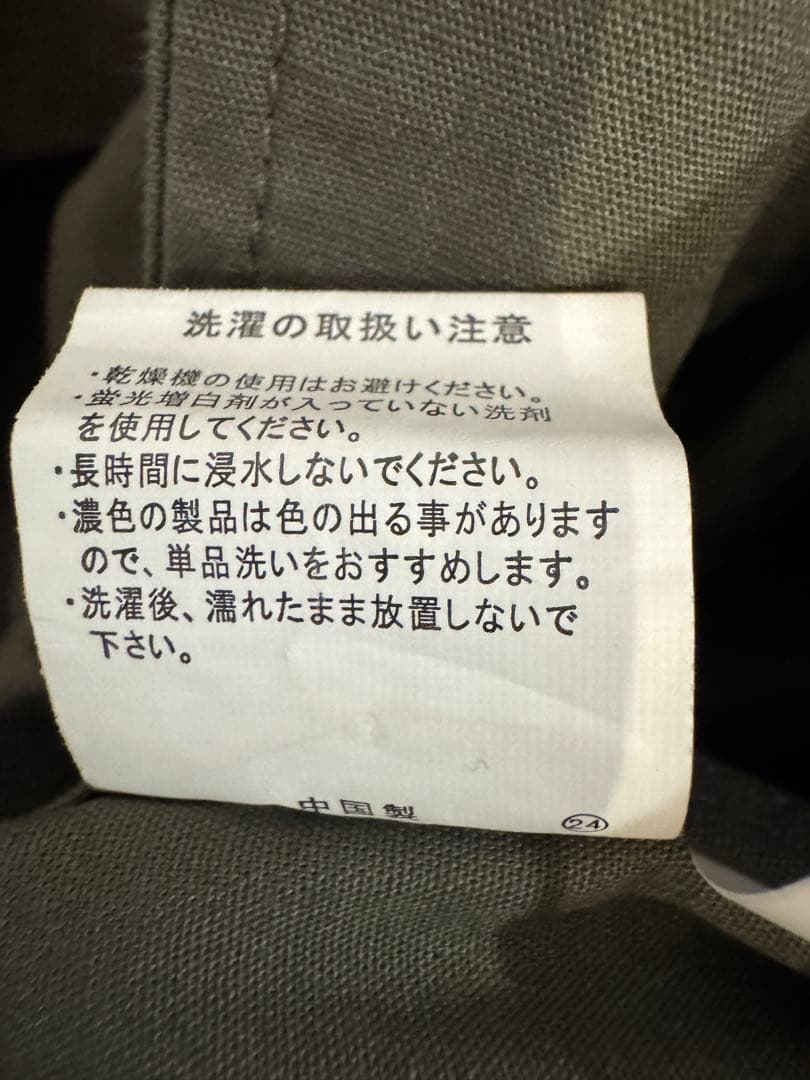 洗濯の取扱い注意
・乾燥機の使用はお避けください。
・蛍光増白剤が入っていない洗剤
を使用してください。
・長時間に浸水しないでください。
・濃色の製品は色の出る事があります
ので、単品洗いをおすすめします。
・洗濯後、濡れたまま放置しないで
下さい。
中国製
24